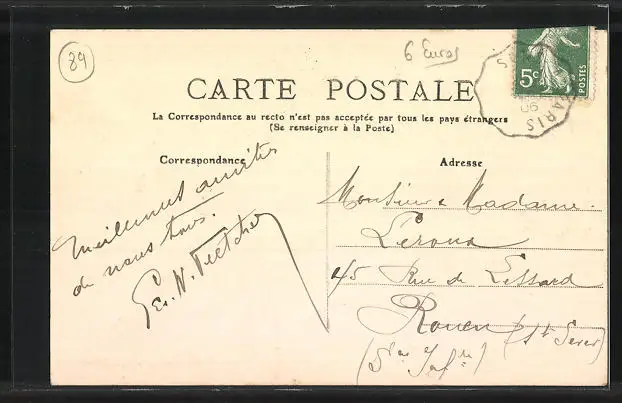 89
6 Euros
5c
POSTES
PARIS
06
CARTE POSTALE
La Correspondance au recto n'est pas acceptée par tous les pays étrangers
(Se renseigner à la Poste)
Correspondance
Meilleures amitiés
de nous tous.
Adresse
Monsieur & Madame
45 Rue de Lessard
Rouen (St Sever)
(Sne Infre)